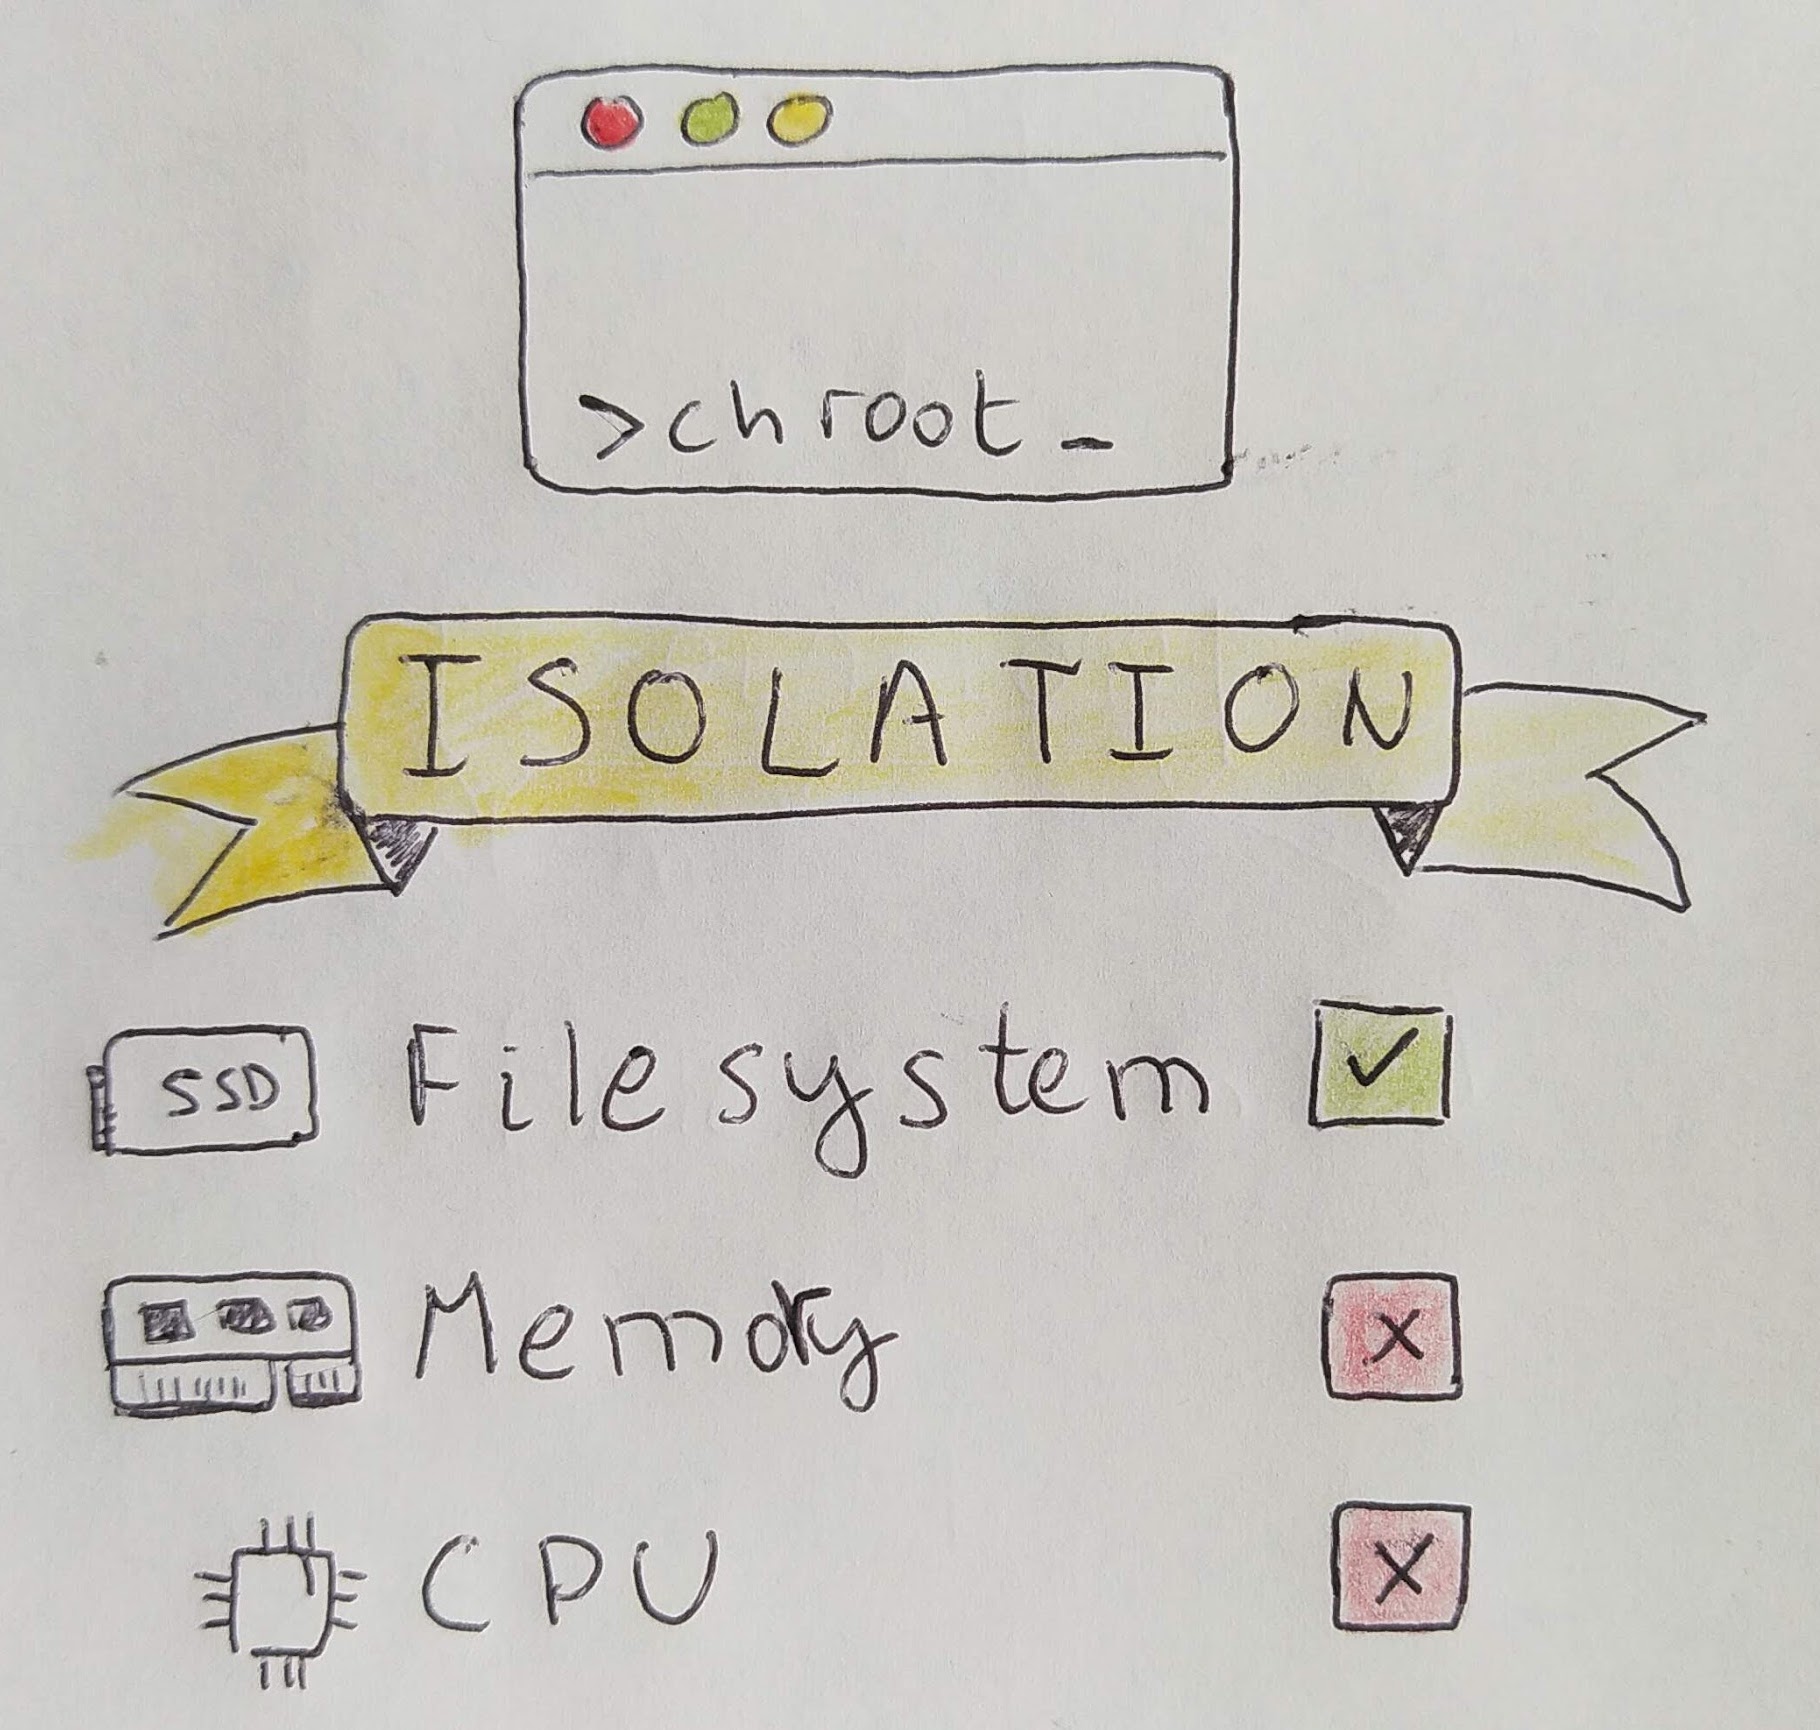 >chroot_
ISOLATION
SSD Filesystem ✓
Memory x
CPU x